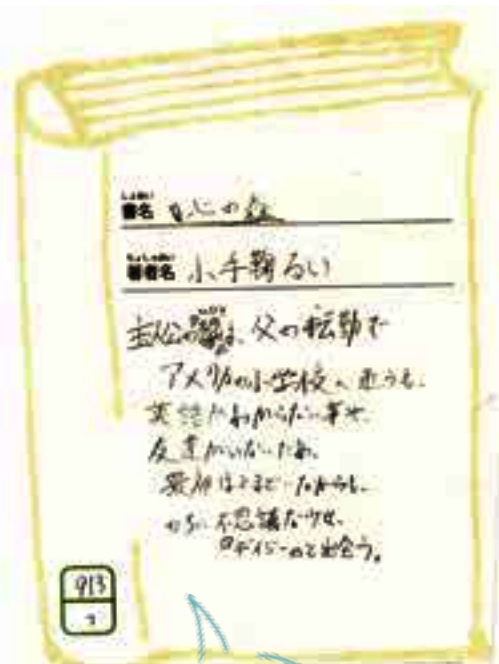 しょめい
書名 心の森
ちょしゃめい
著者名 小手鞠るい
主人公の響は、父の転勤で
アメリカの小学校へ通うも、
英語がわからない事や、
友達がいないため、
最初はとまどったからも、
のちに不思議な少女、
デイジーのと出会う。
913
コ